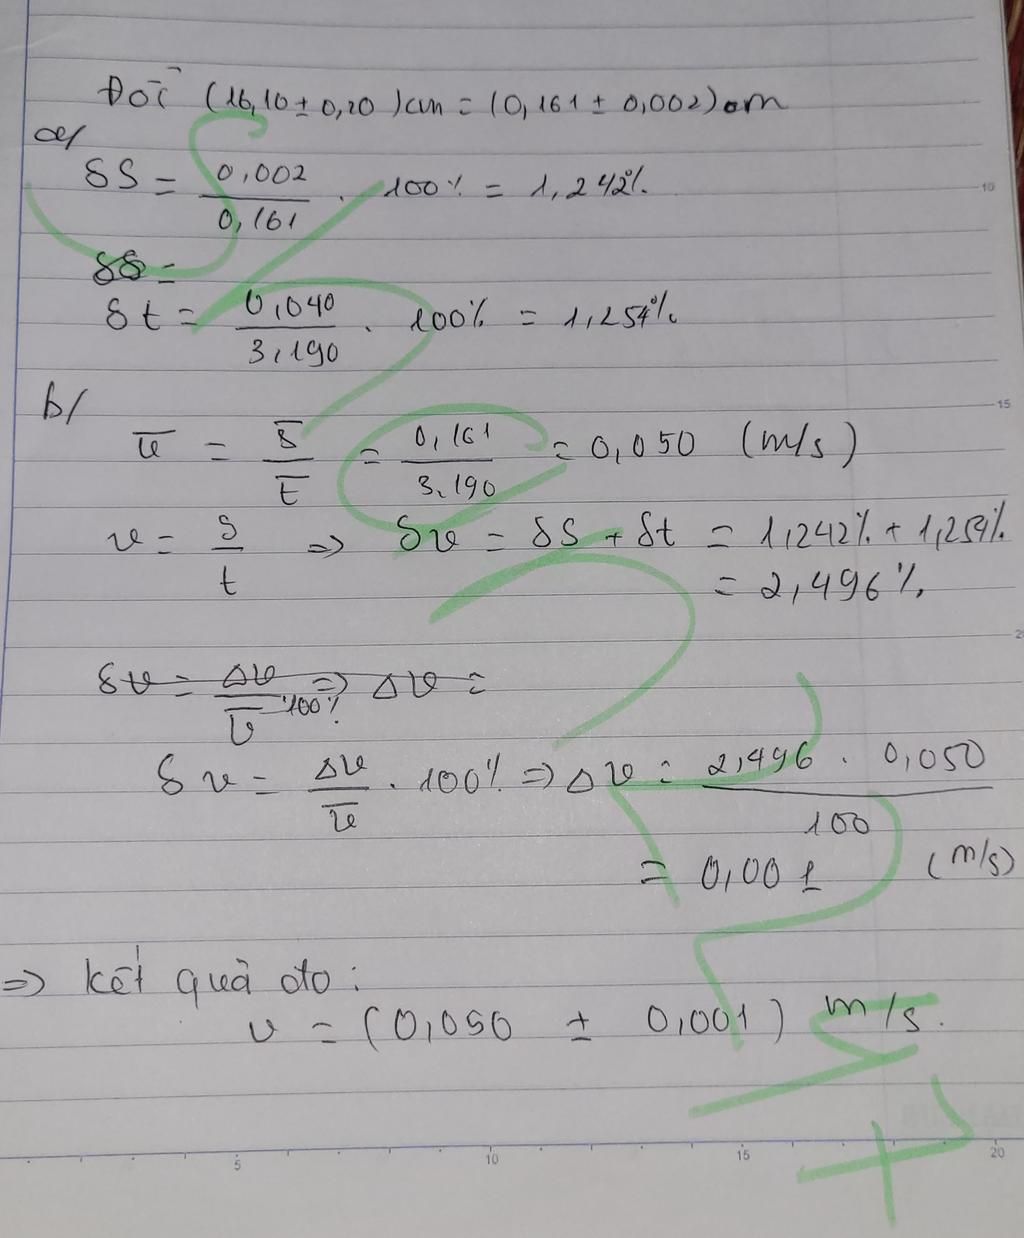 Đổi (16,10 ± 0,20) cm = (0,161 ± 0,002) m
a/
δS = 0,002 / 0,161 . 100% = 1,242%.
δt = 0,040 / 3,190 . 100% = 1,254%
b/
v̄ = s̄ / t̄ = 0,161 / 3,190 = 0,050 (m/s)
v = s / t => δv = δS + δt = 1,242% + 1,254%
= 2,496%.
δv = Δv / v̄ 100% => Δv =
δv = Δv / v̄ . 100% => Δv = 2,496 . 0,050 / 100
= 0,001 (m/s)
=> Kết quả đo:
v = (0,050 ± 0,001) m/s.
5 10 15 20